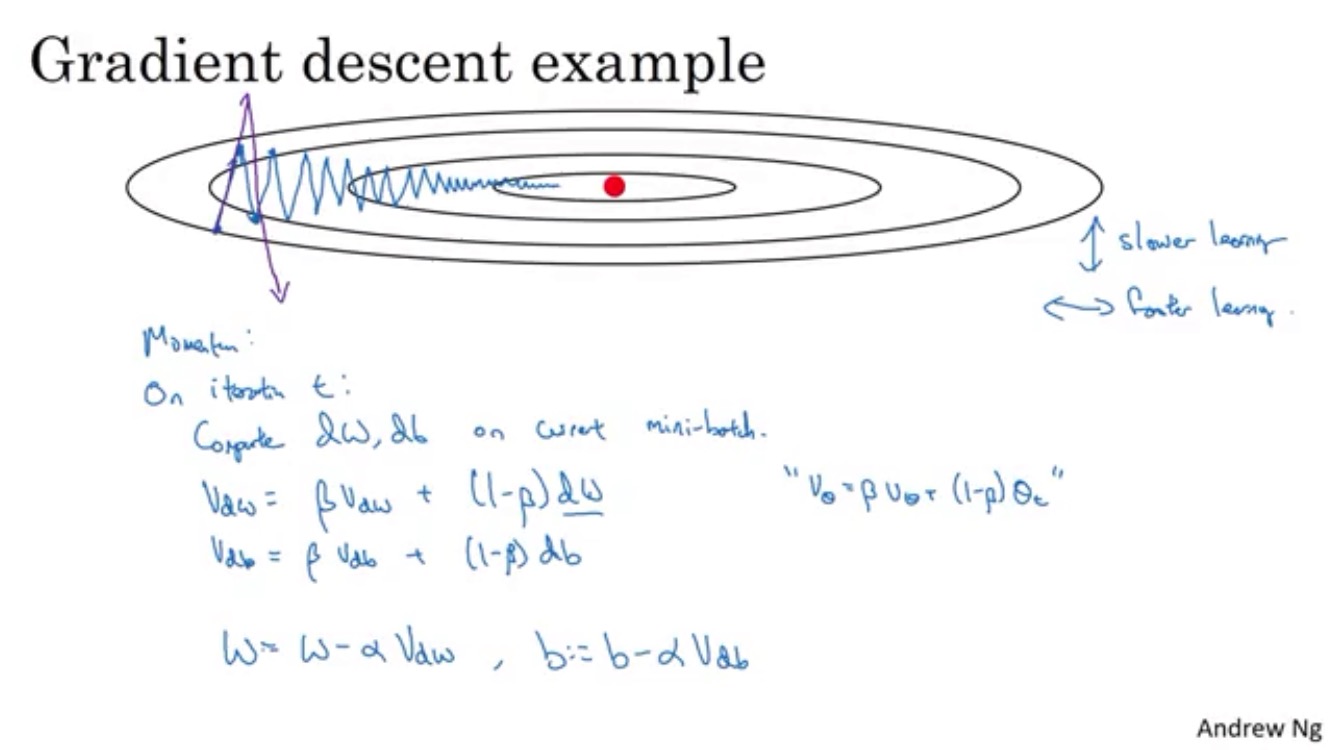 Gradient descent example
↕ slower learning
↔ faster learning.
Momentum:
On iteration t:
Compute dW, db on current mini-batch.
Vdw = βVdw + (1-β)dW
"Vθ = βVθ + (1-β)θt"
Vdb = βVdb + (1-β)db
W = W - αVdw , b := b - αVdb
Andrew Ng